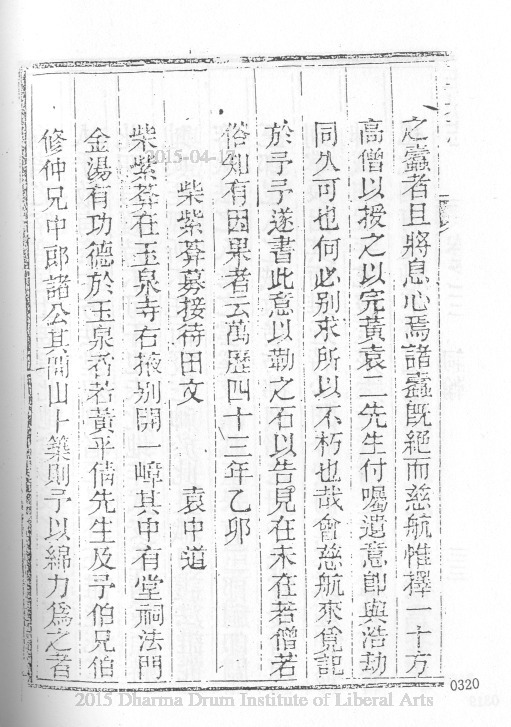 之蠧者且將息心焉諸蠧旣絕而慈航惟擇一十方
高僧以授之以完黃袁二先生付囑遺意卽與浩劫
同久可也何必别求所以不朽也哉會慈航來覓記
於予予遂書此意以勒之石以告見在未在若僧若
俗知有因果者云萬歷四十三年乙卯
柴紫菴募接待田文 袁中道
柴紫菴在玉泉寺右掖别開一嶂其中有堂祠法門
金湯有功德於玉泉者若黃平倩先生及予伯兄伯
修仲兄中郎諸公其開山卜築則予以綿力爲之者
2015-04-14
0320
2015 Dharma Drum Institute of Liberal Arts